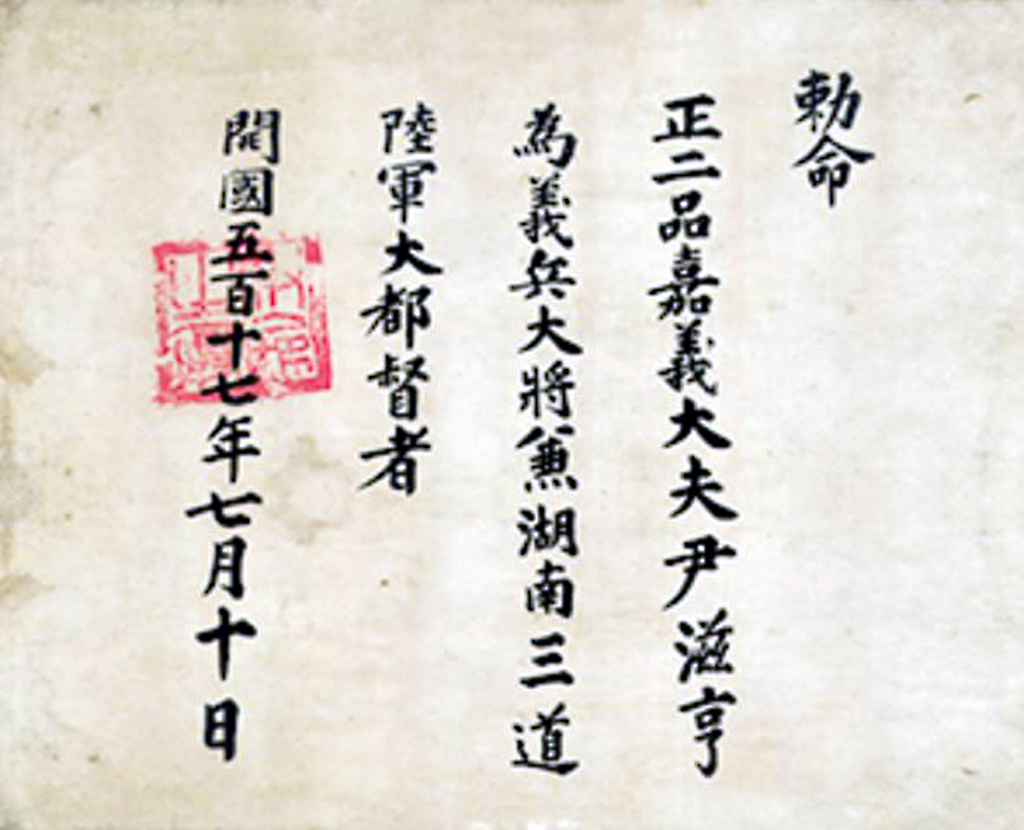 勅命
正二品嘉義大夫尹滋亨
為義兵大將兼湖南三道
陸軍大都督者
開國五百十七年七月十日